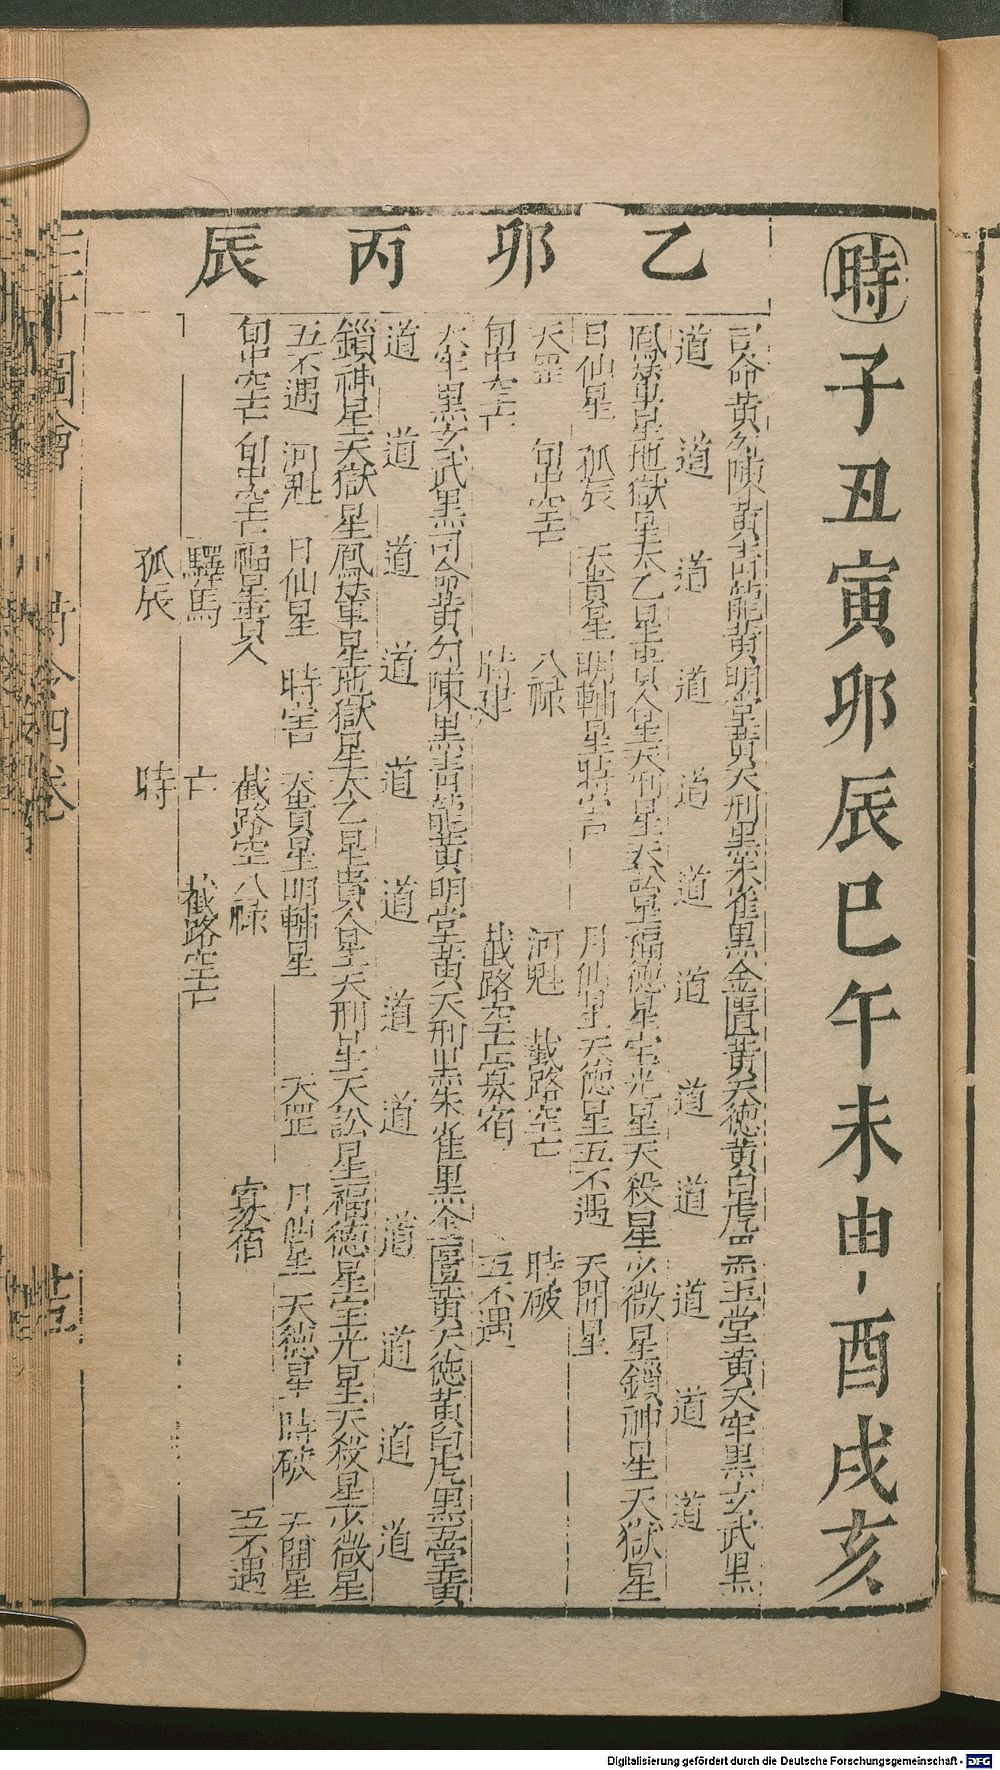 時子丑寅卯辰巳午未申酉戌亥
乙卯
司命黃勾陳黃青龍黃明堂黃天刑黑朱雀黑金匱黃天德黃白虎黑玉堂黃天牢黑玄武黑
道道道道道道道道道道道道
鳳輦星地獄星太乙星貴人星天刑星天訟星福德星宝光星天殺星少微星鎖神星天獄星
日仙星 孤辰 天貴星明輔星時害 月仙星天德星五不遇 天開星
天罡 旬中空亡 八祿 河魁 截路空亡 時破
旬中空亡 時建 截路空亡寡宿 五不遇
丙辰
天牢黑玄武黑司命黃勾陳黑青龍黃明堂黃天刑黑朱雀黑金匱黃天德黃白虎黑玉堂黃
道道道道道道道道道道道道
鎖神星天獄星鳳輦星地獄星太乙星貴人星天刑星天訟星福德星宝光星天殺星少微星
五不遇 河魁 日仙星 時害 天貴星明輔星 天罡 月仙星 天德星 時破 天開星
旬中空亡旬中空亡福星貴人 截路空八祿 寡宿 五不遇
驛馬 亡 截路空亡
孤辰 時
三才圖會 時令四卷
Digitalisierung gefördert durch die Deutsche Forschungsgemeinschaft - DFG